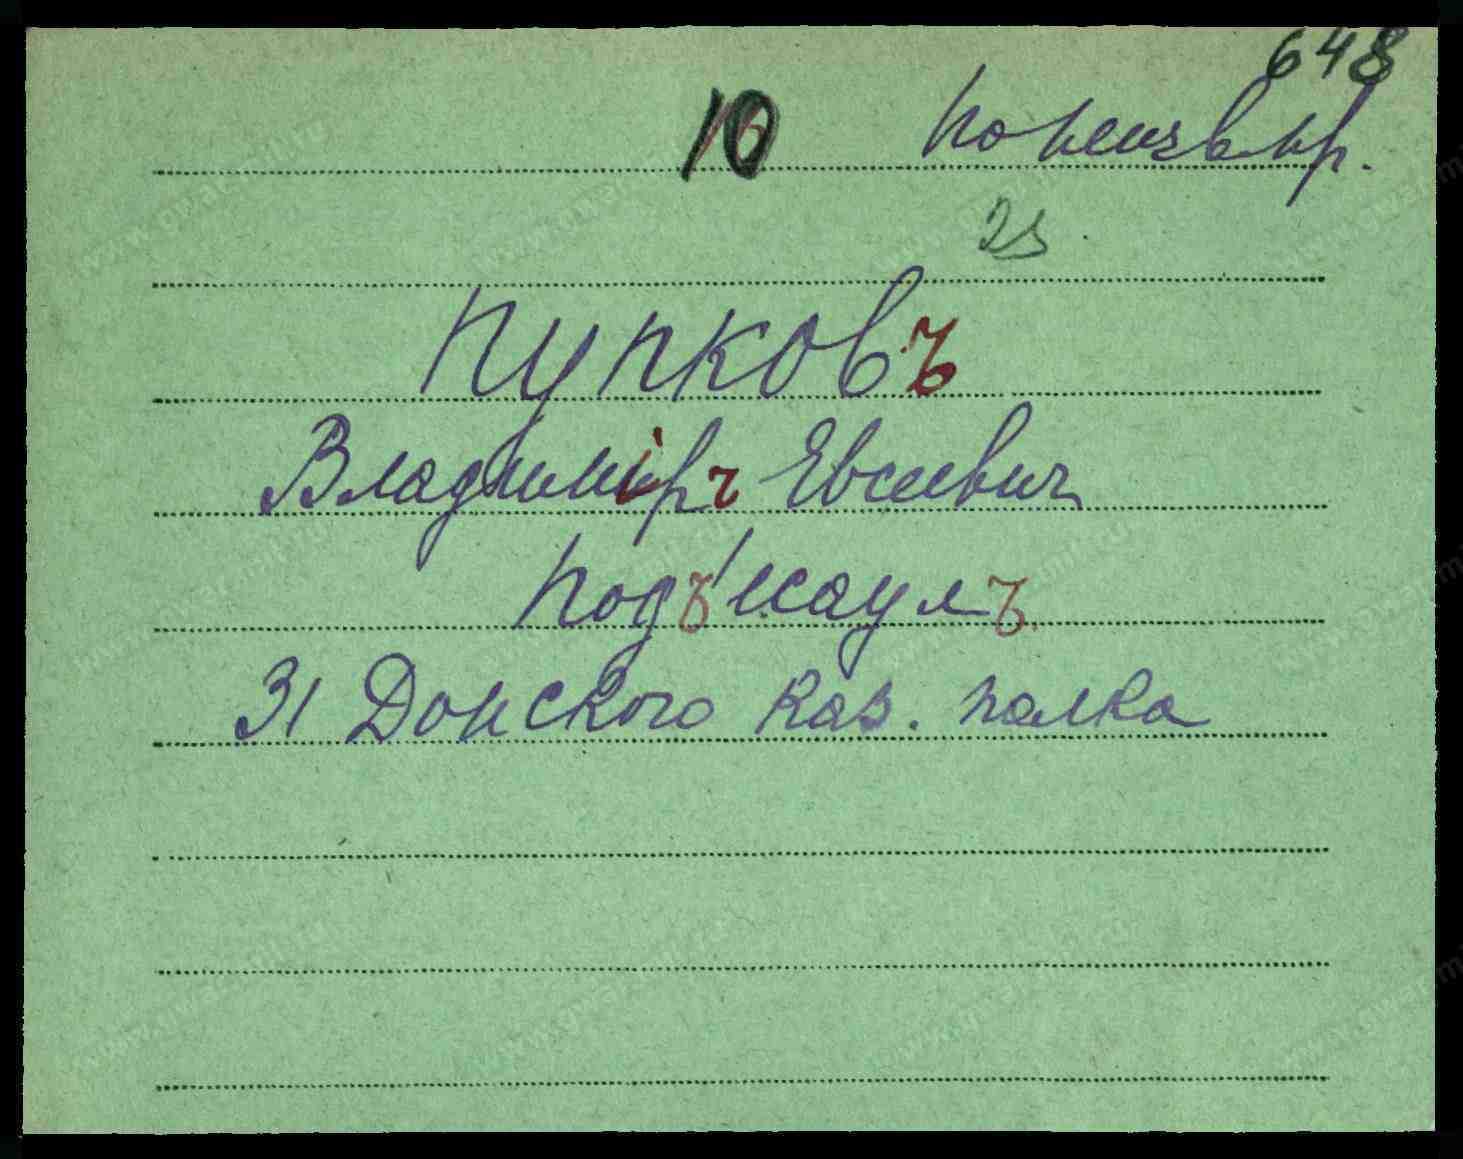 648
10
23
Пупковъ
Владиміръ Евсеевич
Подъесаулъ
31 Донского Каз. полка